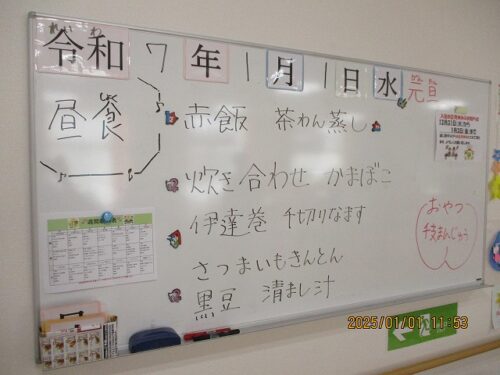 れい わ
令和 7 年 1 月 1 日 水 元旦
がん たん
昼餐
赤飯 茶わん蒸し
炊き合わせ かまぼこ
伊達巻 千切りなます
さつまいもきんとん
黒豆 清まし汁
おやつ
干支まんじゅう
2025/01/01 11:53